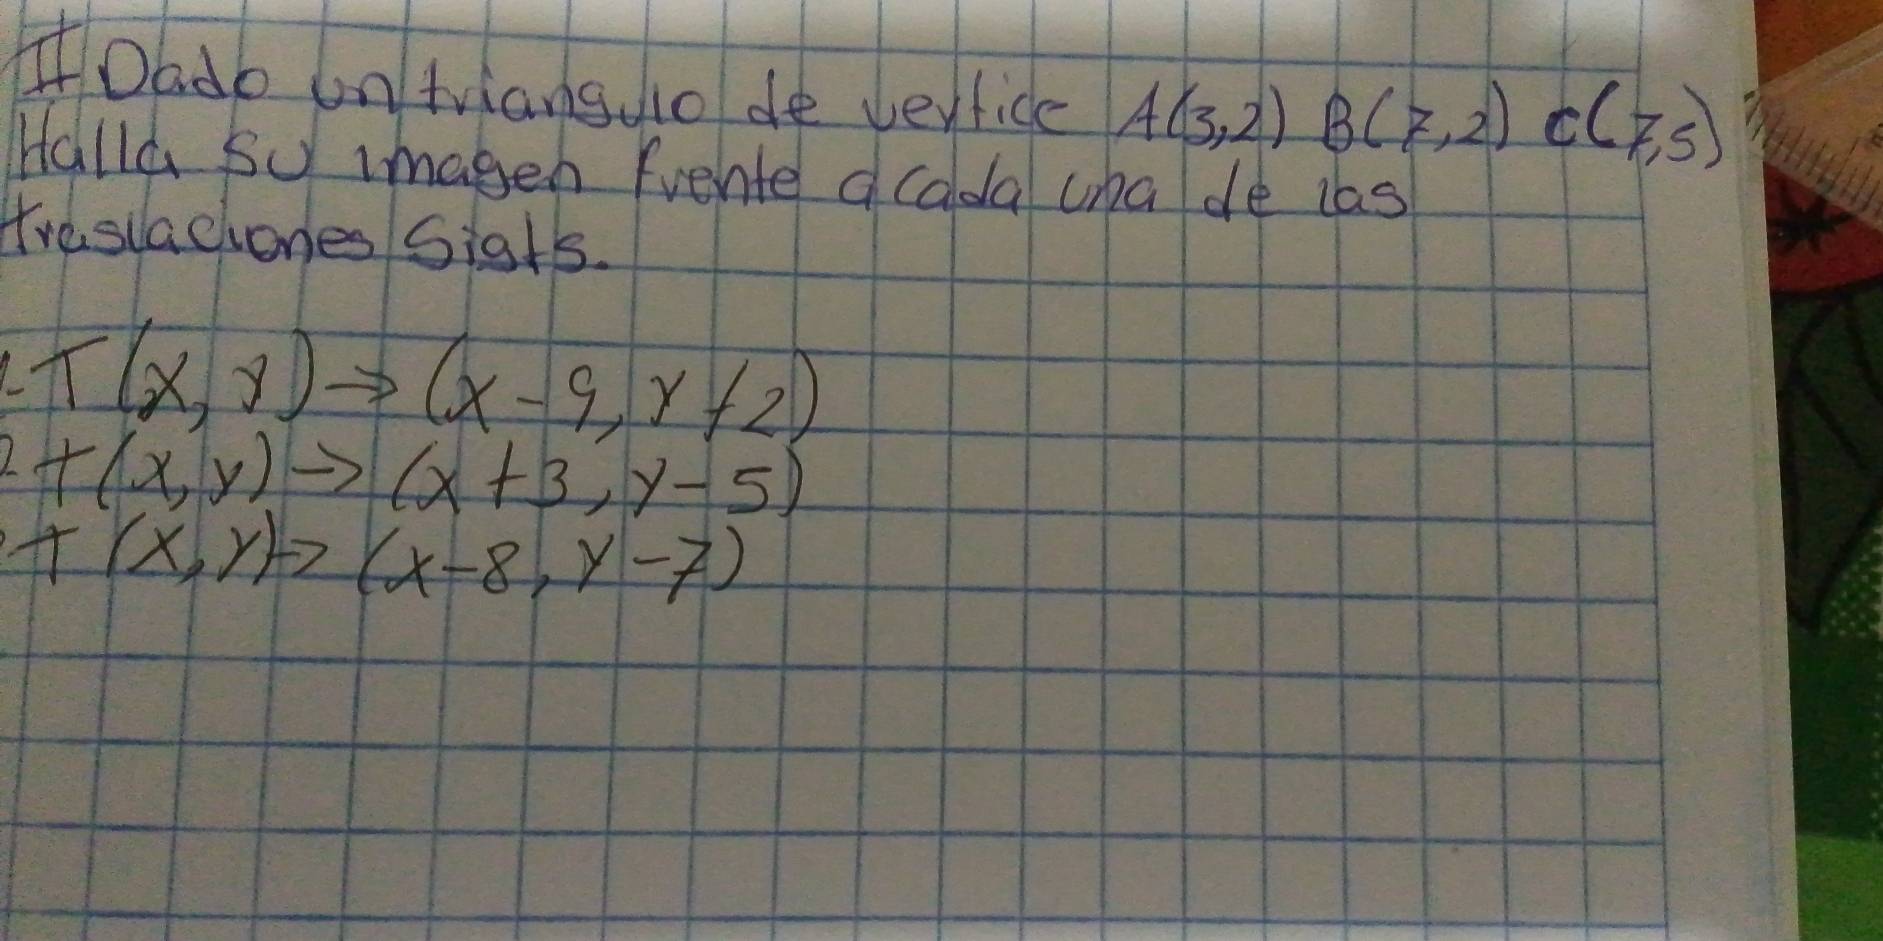 II Dado un triangulo de vertice A(3,2) B(7,2) C(7,5)
Halla su imagen frente a cada una de las
traslaciones Sigts.
1-T(x, y)→(x-9, y+2)
2-T(x,y)→(x+3, y-5)
T(x,y)→(x-8, y-7)